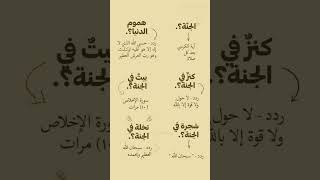 الجنة؟.
آية الكرسي
بعد كل
صلاة
هموم
الدنيا؟.
ردد - حسبي الله الذي لا
إله إلا هو عليه توكلت
وهو رب العرش العظيم
كنزٌ في
الجنة؟.
ردد - لا حول
ولا قوة إلا بالله
بيتٌ في
الجنة؟.
سورة الإخلاص
(١٠) مرات
شجرة في
الجنة؟.
ردد - " سبحان الله "
نخلة في
الجنة؟.
ردد - سبحان الله
العظيم وبحمده
كنزٌ في
الجنة؟.
ولا قوة إلا بالله
سورة الإخلاص
(١٠) مرات